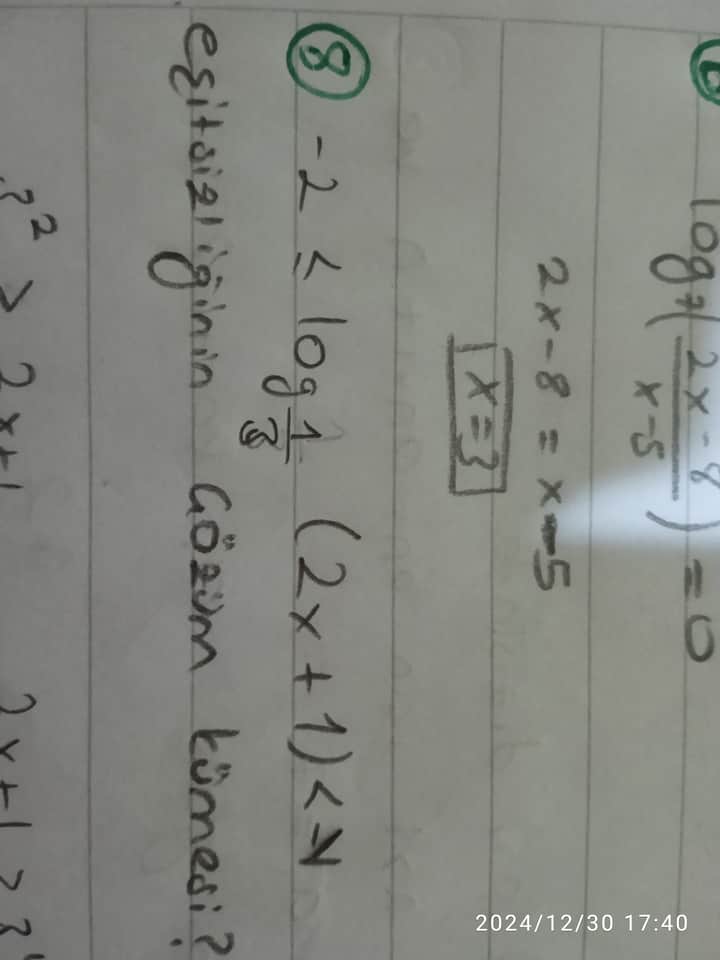 log₇((2x-8)/(x-5)) = 0
2x-8 = x-5
x=3
8 -2 ≤ log 1/3 (2x+1) < -1
eşitsizliğinin çözüm kümesi?
3² ≥ 2x+1 2x+1 > 3¹
2024/12/30 17:40